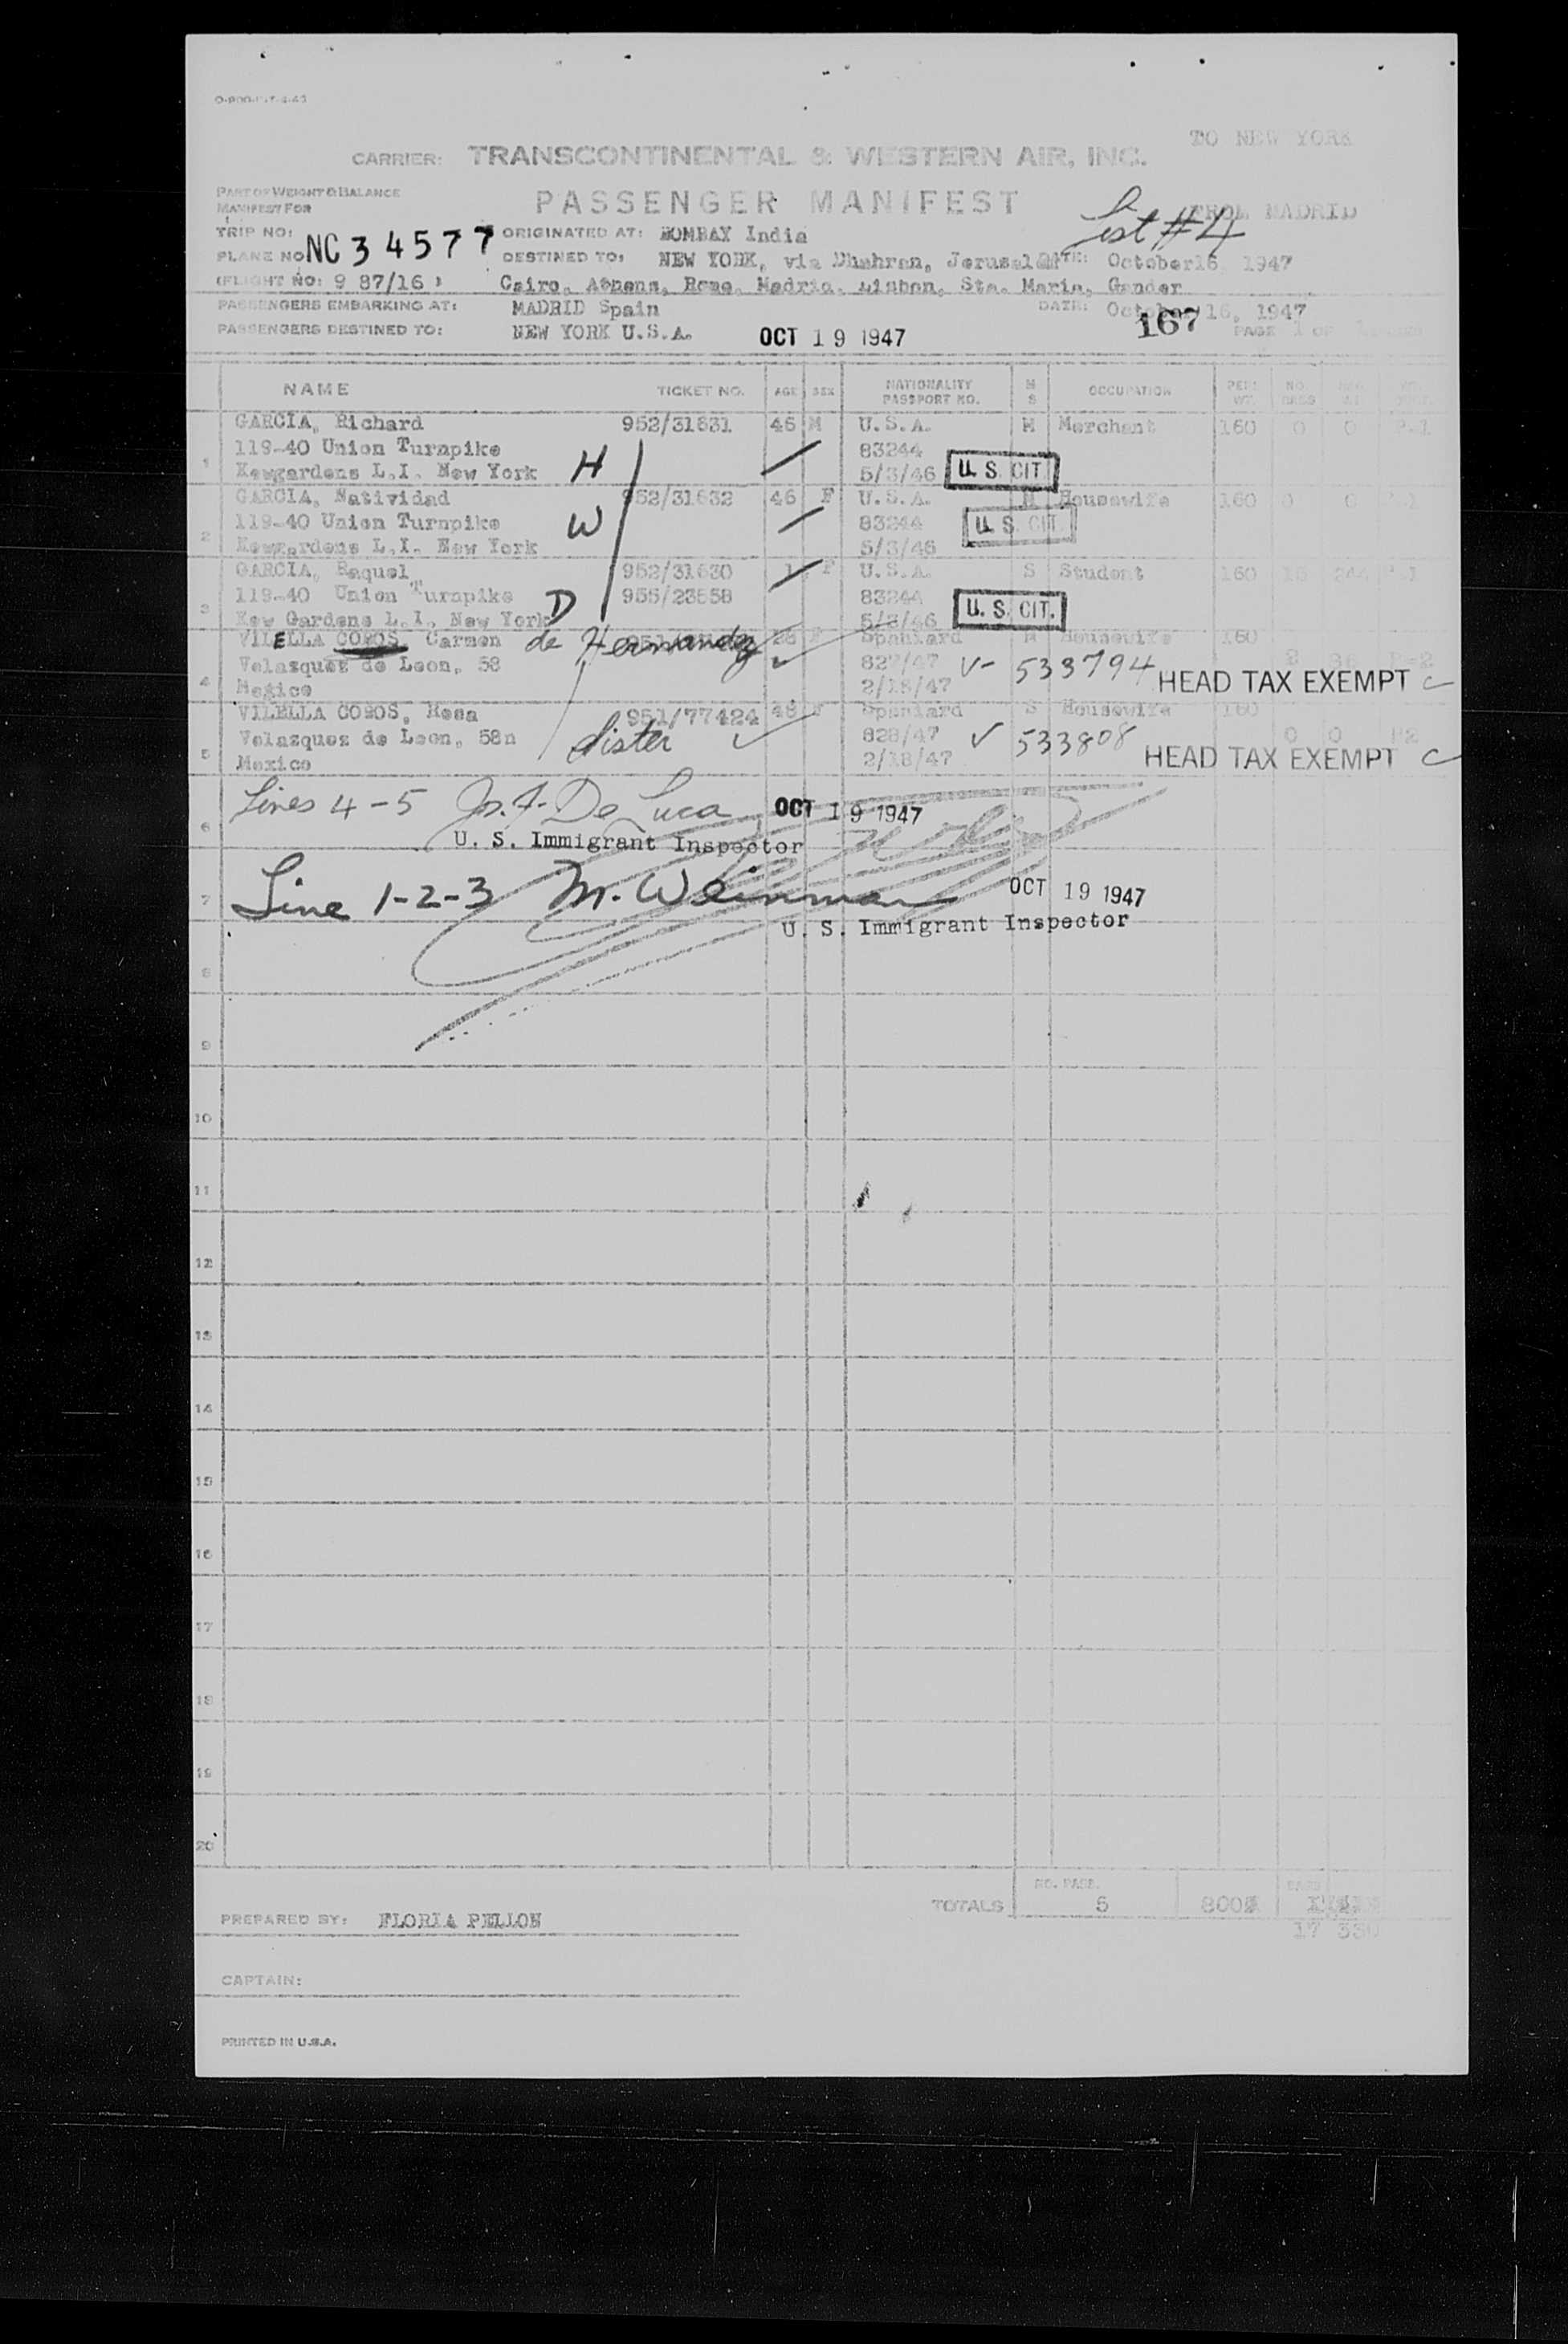 TO NEW YORK
CARRIER: TRANSCONTINENTAL & WESTERN AIR, INC.
PART OF WEIGHT & BALANCE
MANIFEST FOR
PASSENGER MANIFEST
List #4
FROM MADRID
TRIP NO:
ORIGINATED AT: BOMBAY India
PLANE NO NC 34577
DESTINED TO: NEW YORK, via Dhahran, Jerusalem
DATE: October16, 1947
(FLIGHT NO: 9 87/16 )
Cairo, Athens, Rome, Madrid, Lisbon, Sta. Maria, Gander
PASSENGERS EMBARKING AT: MADRID Spain
DATE: October 16, 1947
167
PASSENGERS DESTINED TO: NEW YORK U.S.A.
OCT 19 1947
PAGE 1 OF 1
NAME TICKET NO. AGE SEX NATIONALITY PASSPORT NO. M S OCCUPATION PER: WT. NO. BAGS
1 GARCIA, Richard 952/31631 46 M U.S.A. M Merchant 160 0 0 P-1
119-40 Union Turnpike 83244
Kewgardens L.I. New York H 5/3/46 U.S. CIT.
2 GARCIA, Natividad 952/31632 46 F U.S.A. M Housewife 160 0 0
119-40 Union Turnpike W 83244 U.S. CIT.
Kewgardens L.I. New York 5/3/46
3 GARCIA, Raquel 952/31630 F U.S.A. S Student 160
119-40 Union Turnpike 955/23558 83244
Kew Gardens L.I. New York D 5/3/46 U.S. CIT.
4 VILELLA COMOS, Carmen de Hernandez Spaniard M Housewife 160
Velasquez de Leon, 58 827/47 V- 533794
Megico 2/18/47 HEAD TAX EXEMPT
5 VILELLA COMOS, Rosa 951/77424 48 F Spaniard S Housewife 160
Velazquez de Leon, 58n Sister 828/47 533808 0 0 P2
Mexico 2/18/47 HEAD TAX EXEMPT
6 Lines 4-5 Jos. F. De Luca OCT 19 1947
U. S. Immigrant Inspector
7 Line 1-2-3 M. Weinman OCT 19 1947
U. S. Immigrant Inspector
8
9
10
11
12
13
14
15
16
17
18
19
20
TOTALS NO. PASS. 5
PREPARED BY: FLORIA PELLON
17 330
CAPTAIN:
PRINTED IN U.S.A.